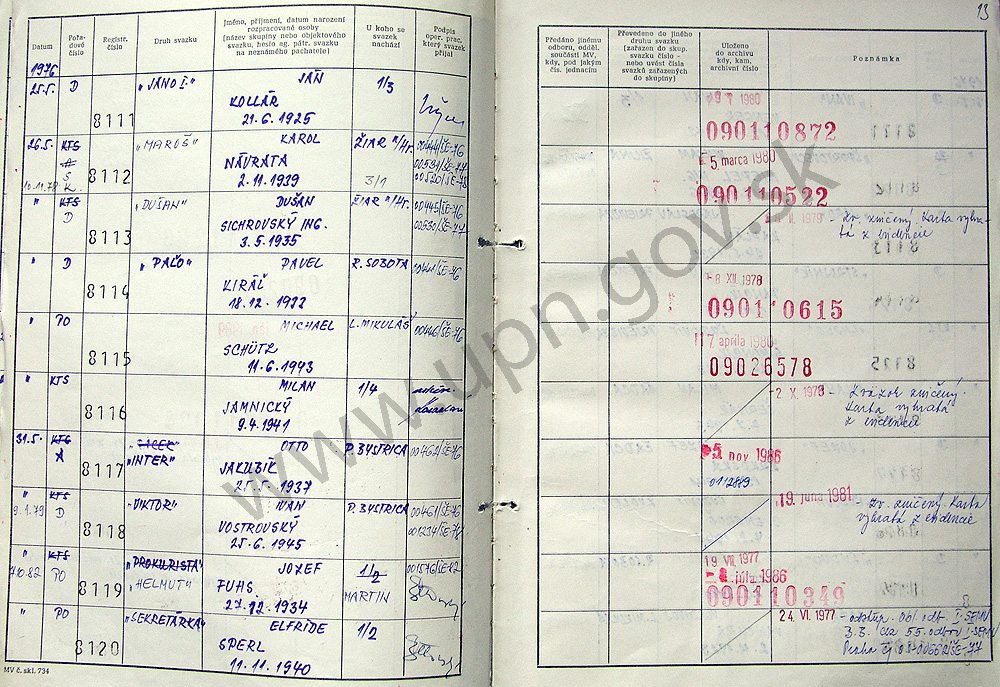 Datum
Pořadové číslo
Registr. číslo
Druh svazku
Jméno, příjmení, datum narození
rozpracované osoby
(název skupiny nebo objektového
svazku, heslo ag. pátr. svazku
na neznámého pachatele)
U koho se
svazek
nachází
Podpis
oper. prac.,
který svazek
přijal
1976
25.5. D 8111 "JANO I." JÁN 1/3
KOLLÁR
21.6.1925
26.5. KTS 8112 "MAROŠ" KAROL ŽIAR n/Hr.
10.11.78 K. NÁVRATA 00531/ŠE-77
2.11.1939 3/1 00520/ŠE-78
" KTS 8113 "DUŠAN" DUŠAN ŽIAR n/Hr. 00445/ŠE-76
D SICHROVSKÝ ING. 00530/ŠE-77
3.5.1935
" D 8114 "PAĽO" PAVEL R. SOBOTA
KIRÁĽ
18.12.1922
" PO 8115 MICHAEL L. MIKULÁŠ 00446/ŠE-76
SCHÜTZ
11.6.1943
" KTS 8116 MILAN 1/4
JAMNICKÝ
9.4.1941
31.5. KTS 8117 OTTO P. BYSTRICA 00462/ŠE-76
A "INTER" JAKUBÍK
1937
" KTS 8118 "VIKTOR" IVAN P. BYSTRICA 00461/ŠE-76
9.1.79 D VOSTROVSKÝ 001234/ŠE-78
25.6.1945
" KTS 8119 "PROKURISTA" JOZEF 1/2 001576/ŠE-82
PO "HELMUT" FUHS MARTIN
27.12.1934
" PO 8120 "SEKRETÁRKA" ELFRIDE 1/2
SPERL
11.11.1940
MV č. skl. 734
13
Předáno jinému
odboru, odděl.
součásti MV,
kdy, pod jakým
čís. jednacím
Převedeno do jiného
druhu svazku
(zařazen do skup.
svazku číslo -
nebo uvést čísla
svazků zařazených
do skupiny)
Uloženo
do archivu
kdy, kam,
archivní číslo
Poznámka
1980
090110872
5 marca 1980
090110522
1979 Zv. zničený. Karta vybra-
tá z evidencie
8 XII. 1978
090110615
17 apríla 1980
09026578
2 X. 1978 - Zväzok zničený.
Karta vybratá
z evidencie
5 nov 1986
012889
19. júna 1981 - Zv. zničený. Karta
vybratá z evidencie
19 VII. 1977
júla 1986
090110349
24. VI. 1977 - odstúp. Obl. odt. I-SEMV
3.3. cez 55. odbor I-SEMV
Praha čj 01-00662/ŠE-77
www.upn.gov.sk